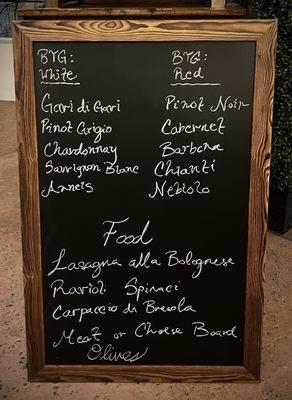 BTG:
White
Gavi di Gavi
Pinot Grigio
Chardonnay
Sauvignon Blanc
Arneis
BTG:
Red
Pinot Noir
Cabernet
Barbera
Chianti
Nebiolo
Food
Lasagna alla Bolognese
Ravioli Spinaci
Carpaccio di Bresola
Meat or Cheese Board
Olives